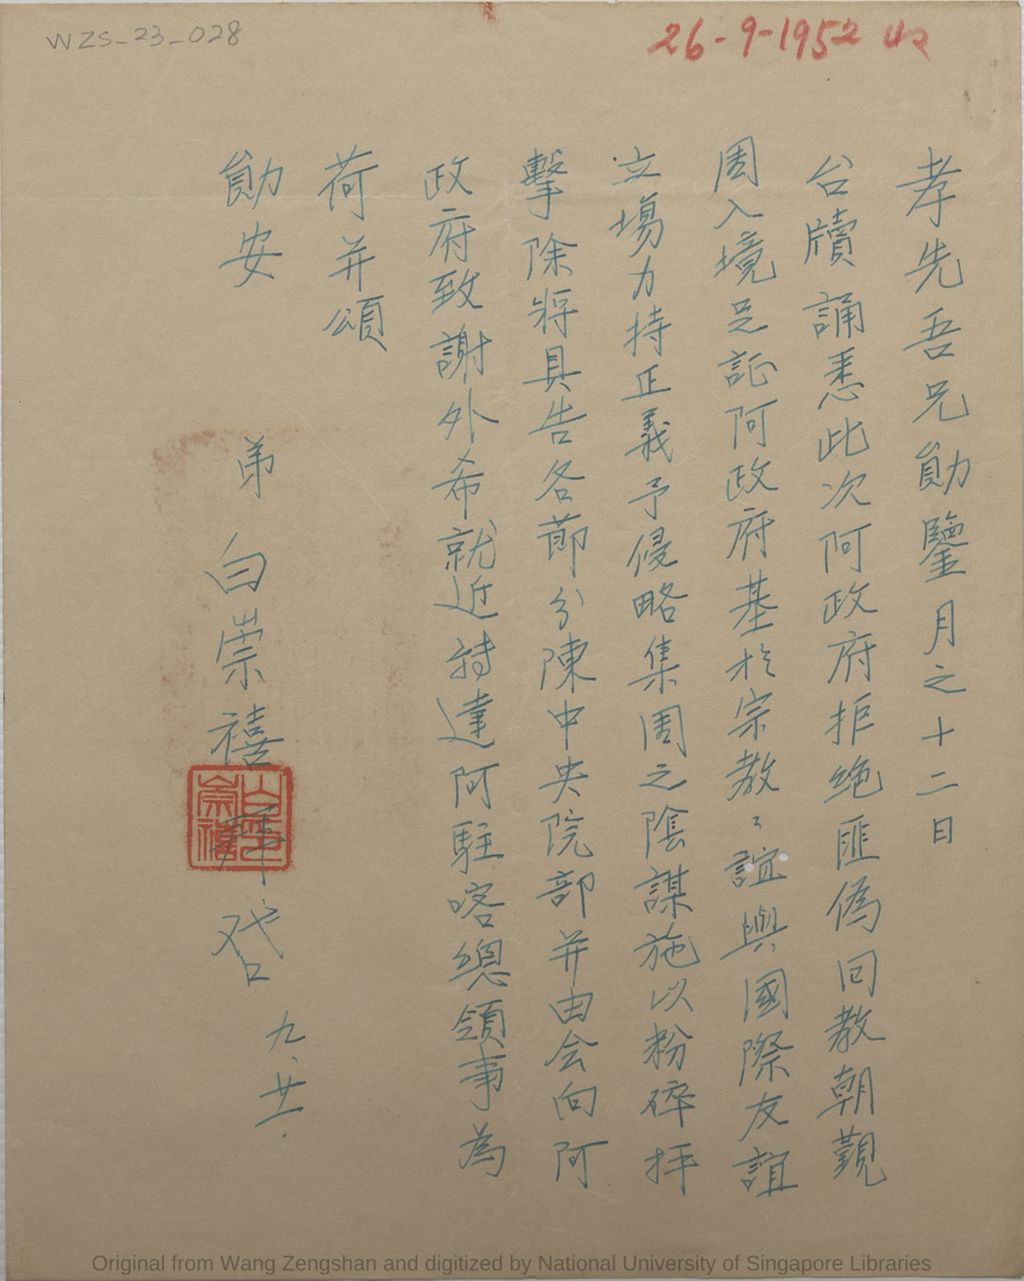 WZS-23-028
26-9-1952
孝先吾兄勛鑒月之十二日
台牘誦悉此次阿政府拒絶匪偽回教朝觐
周入境足証阿政府基於宗教〻誼與國際友誼
立場力持正義予侵略集周之陰謀施以粉碎抨
擊除將具告各節分陳中央院部并由会向阿
政府致謝外希就近轉達阿駐喀總領事為
荷并頌
勛安
弟 白崇禧 拜啓 九、廿一.
白崇禧
Original from Wang Zengshan and digitized by National University of Singapore Libraries